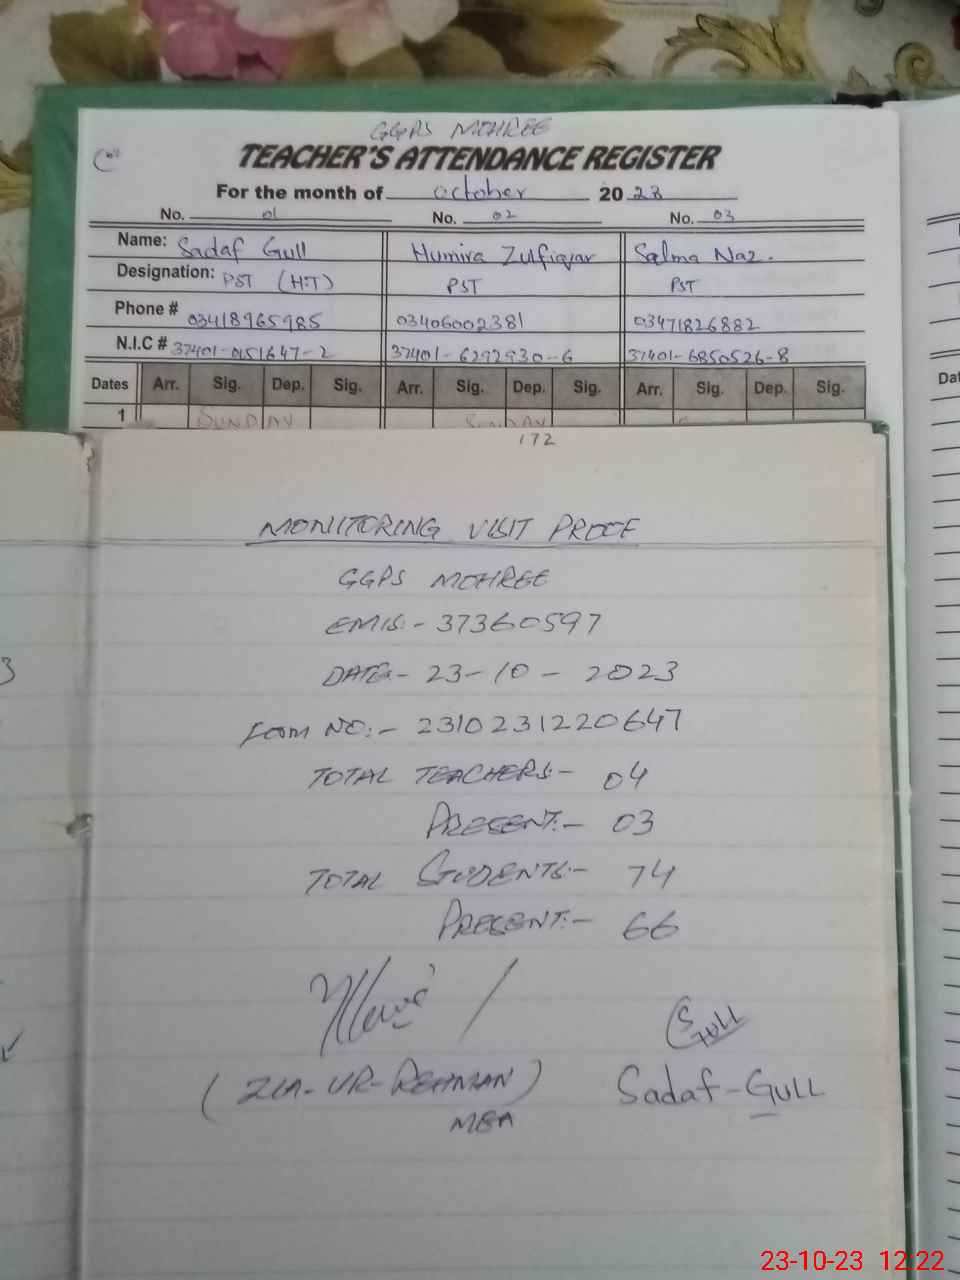 GGPS MOHREE
TEACHER'S ATTENDANCE REGISTER
For the month of October 2023
No. 01 No. 02 No. 03
Name: Sadaf Gull Humira Zulfiqar Salma Naz.
Designation: PST (H:T) PST PST
Phone # 03418965985 03406002381 03471826882
N.I.C # 37401-0151647-2 37401-6292930-6 37401-6850526-8
Dates Arr. Sig. Dep. Sig. Arr. Sig. Dep. Sig. Arr. Sig. Dep. Sig.
1 SUNDAY SUNDAY
172
MONITORING VISIT PROOF
GGPS MOHREE
EMIS:- 37360597
DATE- 23-10-2023
FORM NO:- 2310231220647
TOTAL TEACHERS:- 04
PRESENT:- 03
TOTAL STUDENTS:- 74
PRESENT:- 66
SGULL
(ZIA-UR-REHMAN) Sadaf-GULL
MEA
23-10-23 12:22